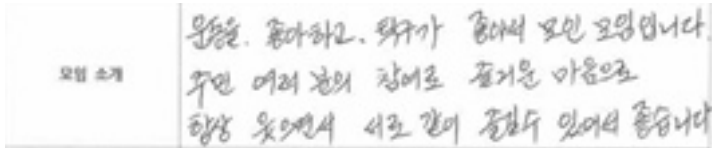 모임 소개
운동을. 좋아하고. 탁구가 좋아서 모인 모임입니다.
주민 여러 분의 참여로 즐거운 마음으로
항상 웃으면서 서로 같이 즐길수 있어서 좋습니다